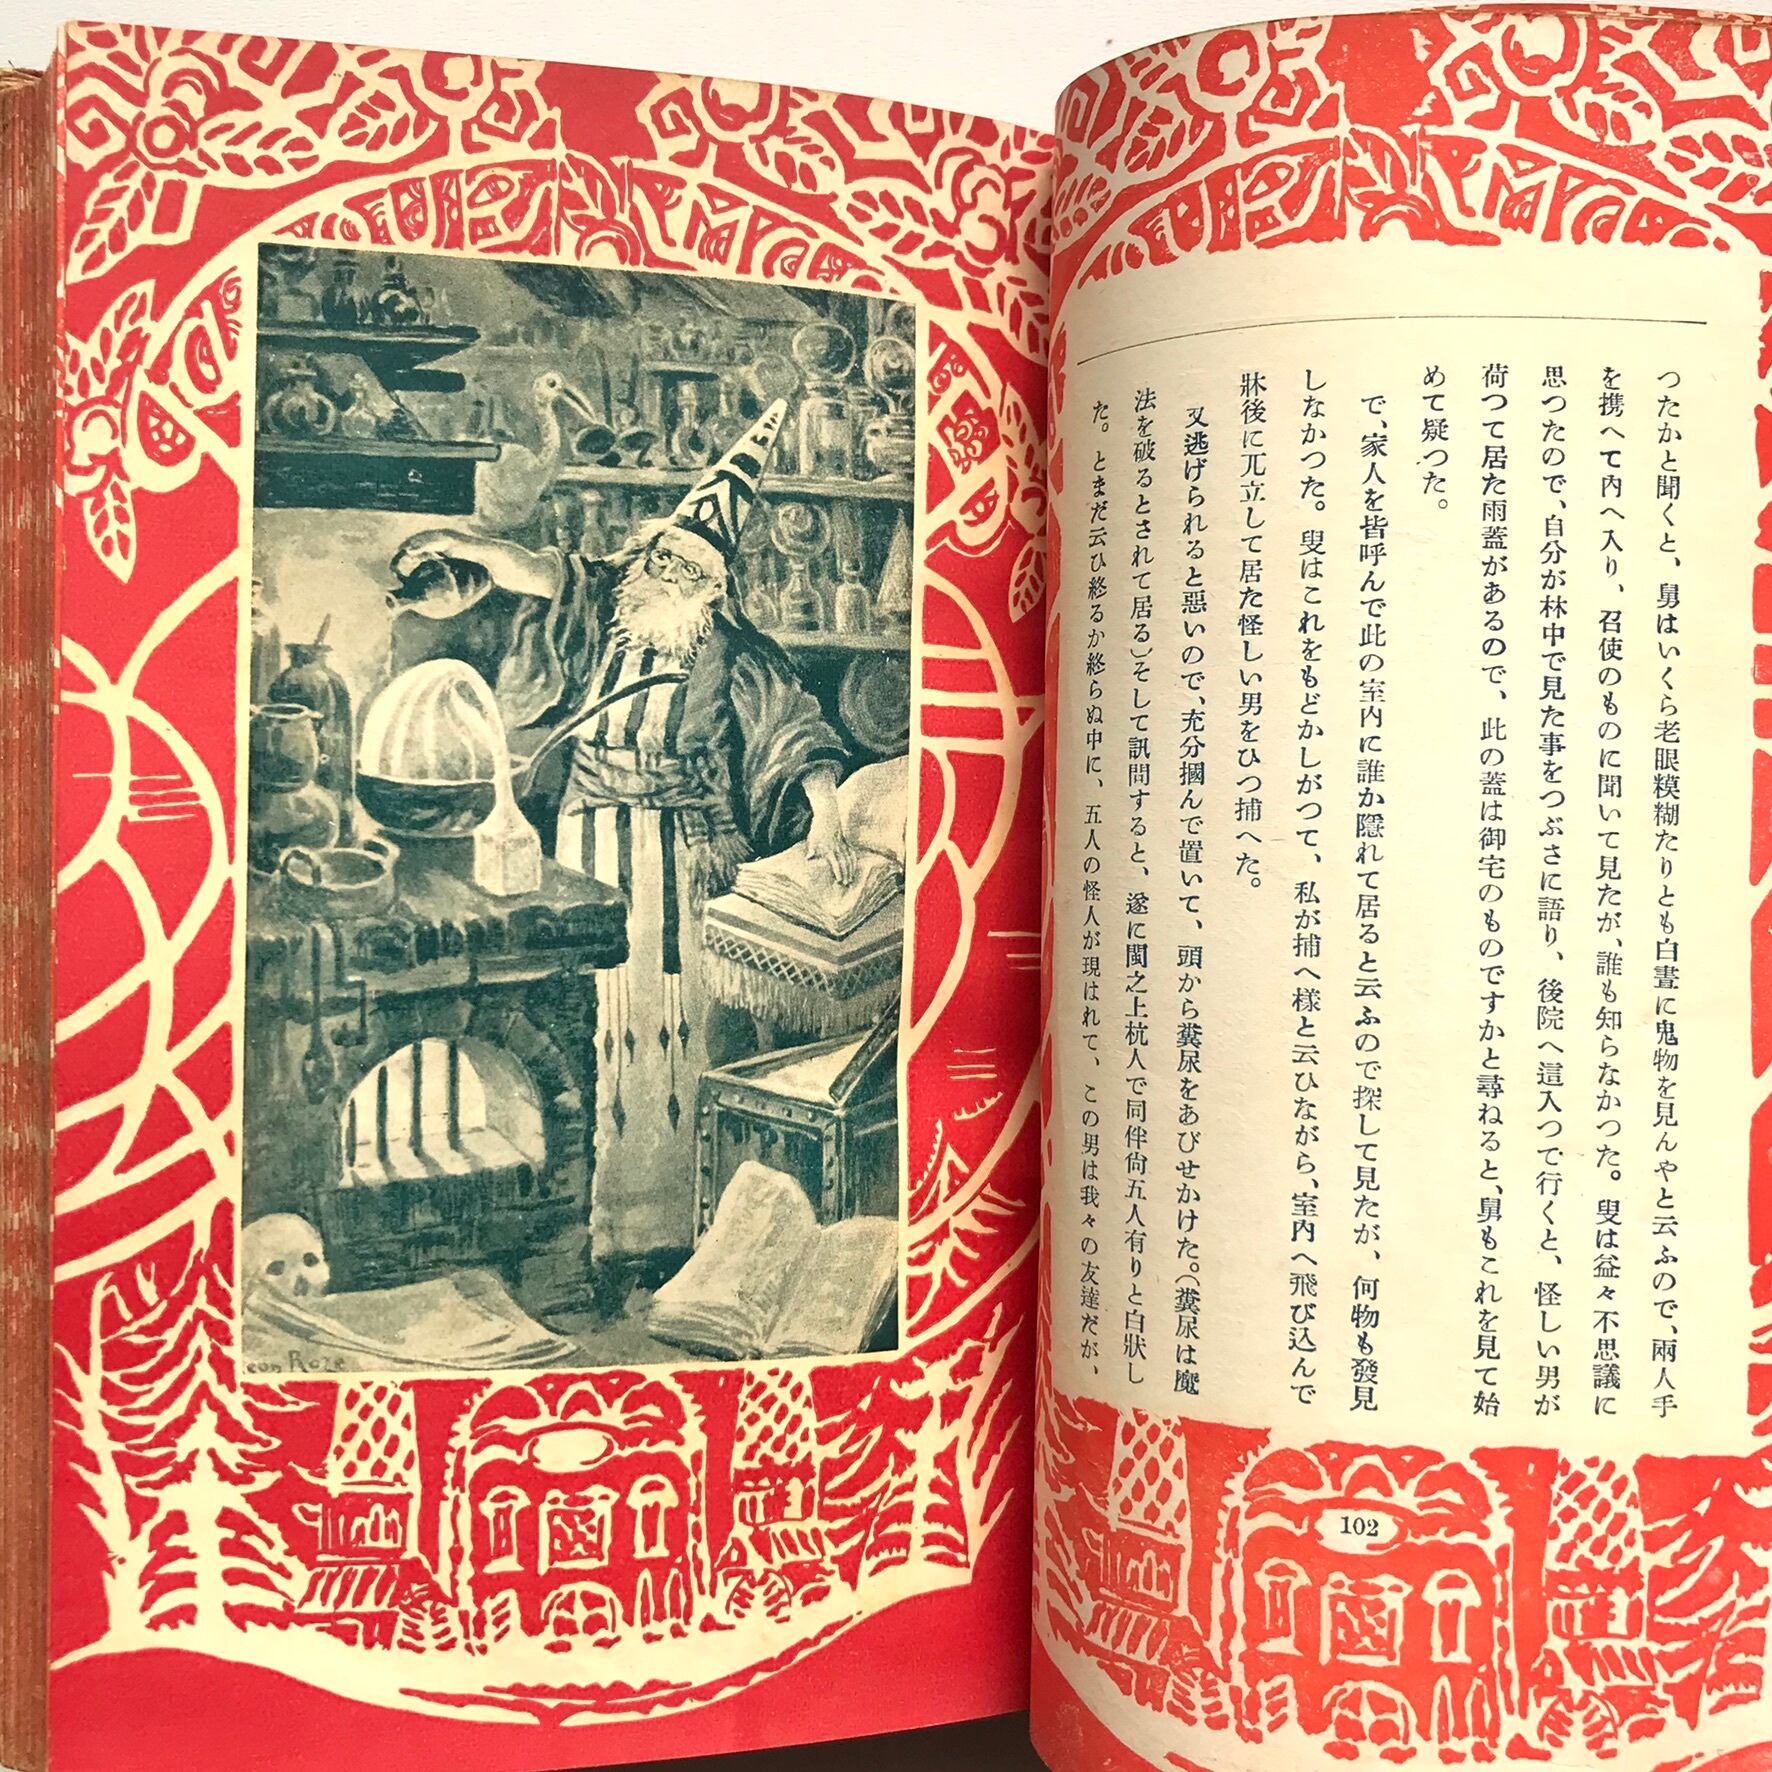 つたかと聞くと、舅はいくら老眼糢糊たりとも白晝に鬼物を見んやと云ふので、兩人手
を携へて内へ入り、召使のものに聞いて見たが、誰も知らなかつた。叟は益々不思議に
思つたので、自分が林中で見た事をつぶさに語り、後院へ這入つて行くと、怪しい男が
荷つて居た雨蓋があるので、此の蓋は御宅のものですかと尋ねると、舅もこれを見て始
めて疑つた。
で、家人を皆呼んで此の室内に誰か隱れて居ると云ふので探して見たが、何物も發見
しなかつた。叟はこれをもどかしがつて、私が捕へ樣と云ひながら、室内へ飛び込んで
牀後に兀立して居た怪しい男をひつ捕へた。
又逃げられると惡いので、充分摑んで置いて、頭から糞尿をあびせかけた。(糞尿は魔
法を破るとされて居る)そして訊問すると、遂に閩之上杭人で同伴尙五人有りと白狀し
た。とまだ云ひ終るか終らぬ中に、五人の怪人が現はれて、この男は我々の友達だが、
102
eon Roze